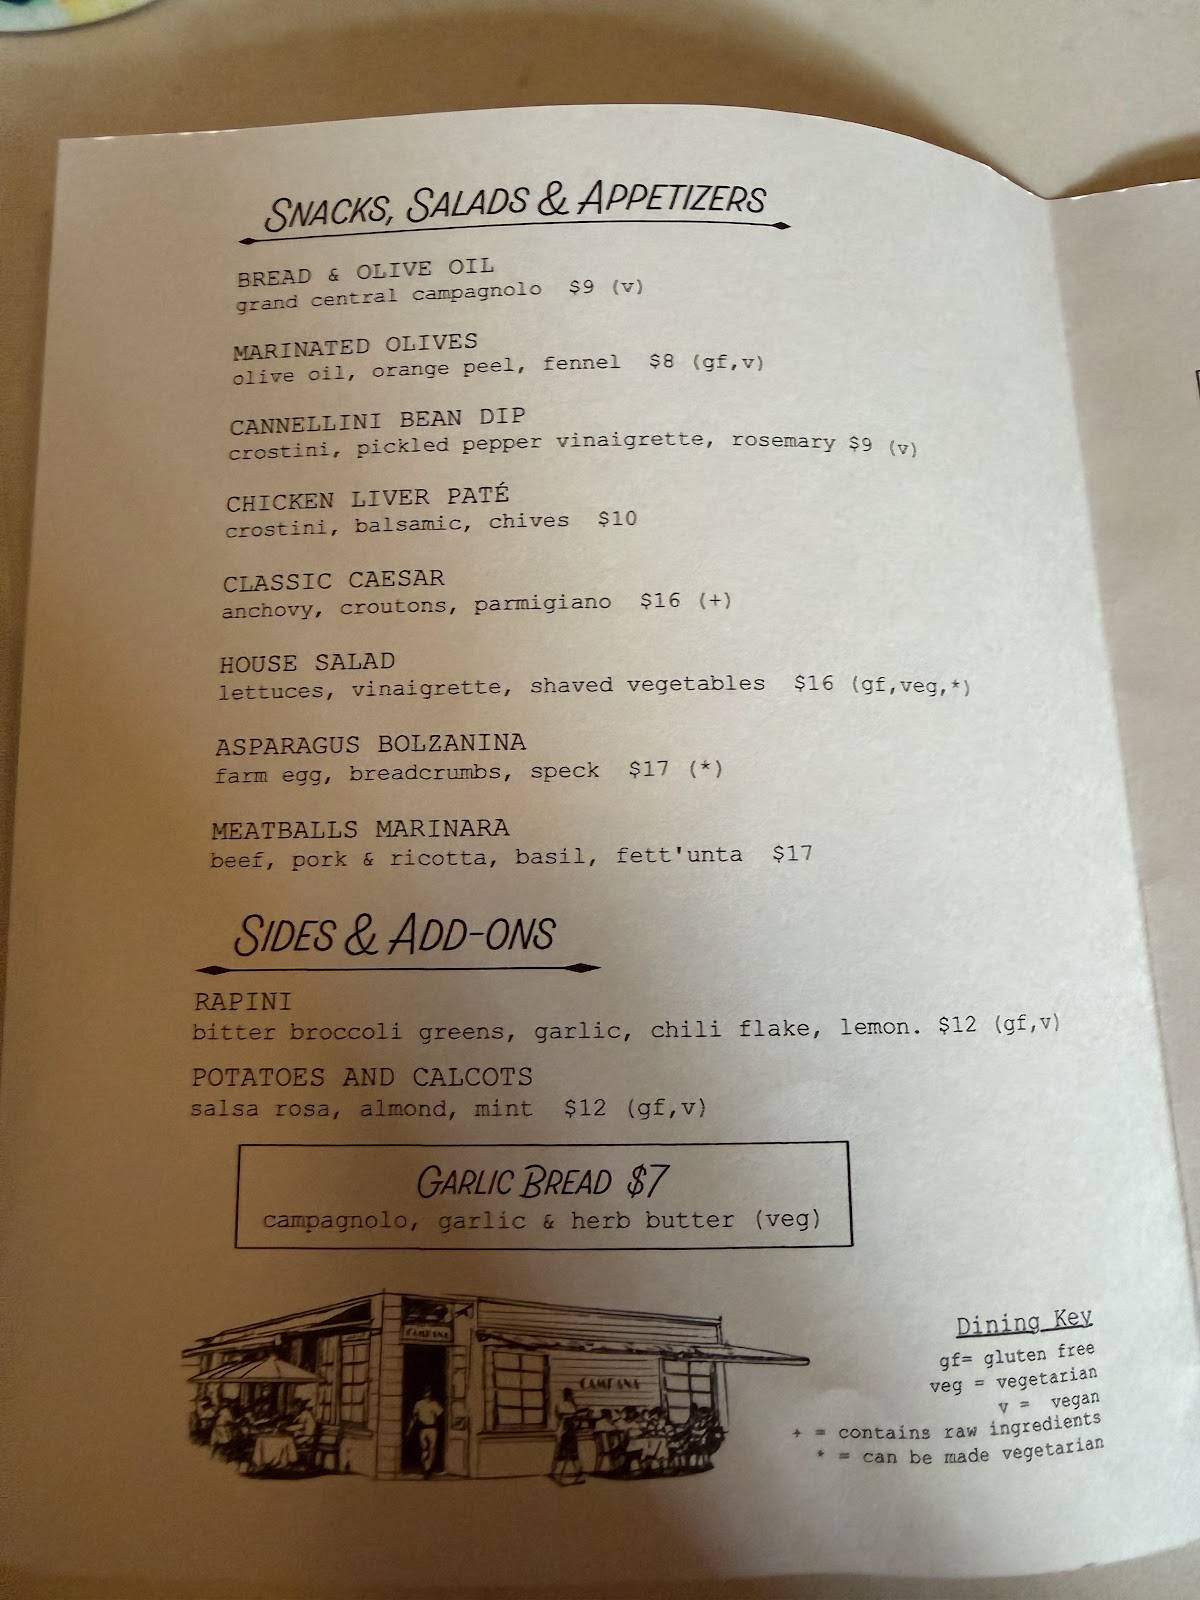 SNACKS, SALADS & APPETIZERS
BREAD & OLIVE OIL
grand central campagnolo $9 (v)
MARINATED OLIVES
olive oil, orange peel, fennel $8 (gf,v)
CANNELLINI BEAN DIP
crostini, pickled pepper vinaigrette, rosemary $9 (v)
CHICKEN LIVER PATÉ
crostini, balsamic, chives $10
CLASSIC CAESAR
anchovy, croutons, parmigiano $16 (+)
HOUSE SALAD
lettuces, vinaigrette, shaved vegetables $16 (gf,veg,*)
ASPARAGUS BOLZANINA
farm egg, breadcrumbs, speck $17 (*)
MEATBALLS MARINARA
beef, pork & ricotta, basil, fett'unta $17
SIDES & ADD-ONS
RAPINI
bitter broccoli greens, garlic, chili flake, lemon. $12 (gf,v)
POTATOES AND CALCOTS
salsa rosa, almond, mint $12 (gf,v)
GARLIC BREAD $7
campagnolo, garlic & herb butter (veg)
CAMPANA
CAMPANA
Dining Key
gf= gluten free
veg = vegetarian
v = vegan
+ = contains raw ingredients
* = can be made vegetarian